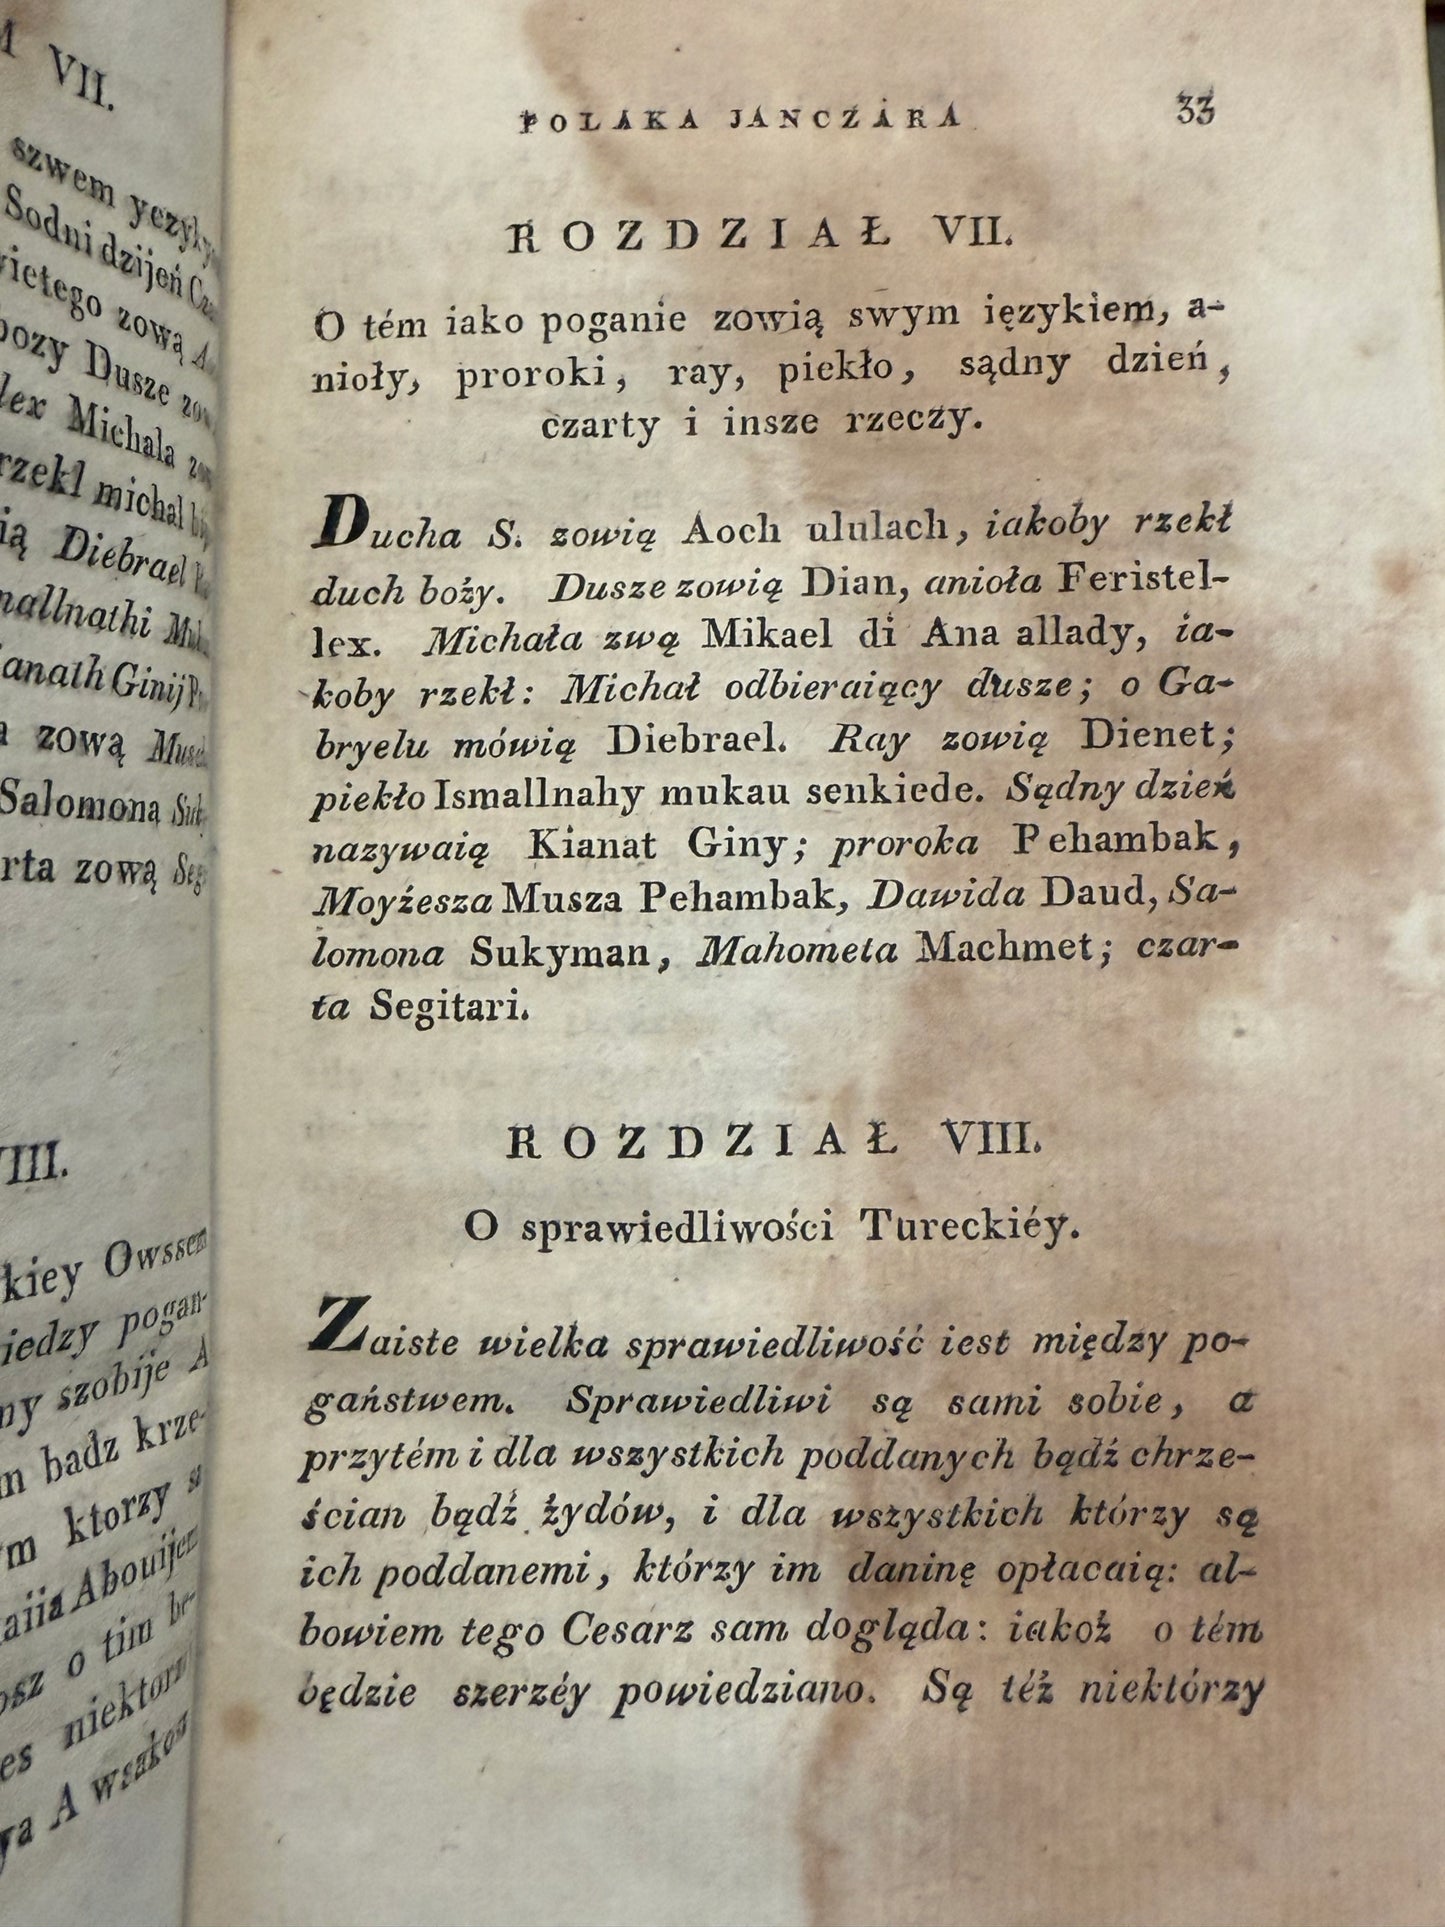 VII.
szwem yezyky
Sodni dzijeń
wietego zową
bozy Dusze
lex Michala
rzekl michal
Diebrael
mallnathi
ianath Ginij
zową
Salomona
rta zową
VIII.
kiey Owssem
iedzy pogan-
ny szobije A
badz krze-
ktorzy
aiia Abouijem
osz o tim be-
es niektorzi
ya A wsakosz
POLAKA JANCZARA 33
ROZDZIAŁ VII.
O tém iako poganie zowią swym ięzykiem, a-
nioły, proroki, ray, piekło, sądny dzień,
czarty i insze rzeczy.
Ducha S. zowią Aoch ululach, iakoby rzekł
duch boży. Dusze zowią Dian, anioła Feristel-
lex. Michała zwą Mikael di Ana allady, ia-
koby rzekł: Michał odbieraiący dusze; o Ga-
bryelu mówią Diebrael. Ray zowią Dienet;
piekło Ismallnahy mukau senkiede. Sądny dzień
nazywaią Kianat Giny; proroka Pehambak,
Moyżesza Musza Pehambak, Dawida Daud, Sa-
lomona Sukyman, Mahometa Machmet; czar-
ta Segitari.
ROZDZIAŁ VIII.
O sprawiedliwości Tureckiéy.
Zaiste wielka sprawiedliwość iest między po-
gaństwem. Sprawiedliwi są sami sobie, a
przytém i dla wszystkich poddanych bądź chrze-
ścian bądź żydów, i dla wszystkich którzy są
ich poddanemi, którzy im daninę opłacaią: al-
bowiem tego Cesarz sam dogląda: iakoż o tém
będzie szerzéy powiedziano. Są téż niektórzy